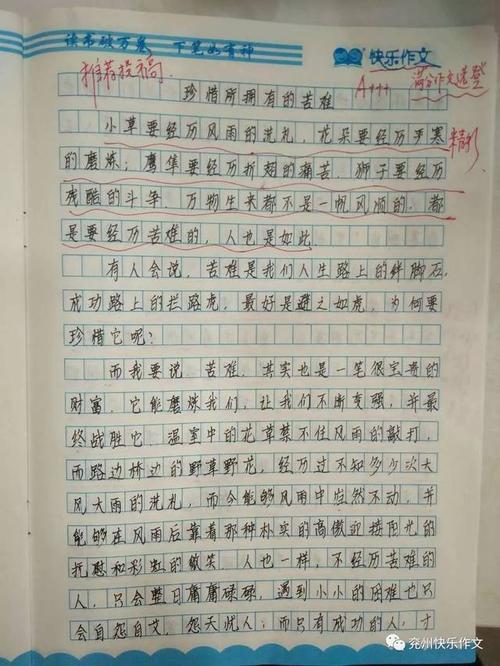 读书破万卷 下笔如有神
快乐作文
推荐投稿
A+++
满分作文选登
珍惜所拥有的苦难
小草要经历风雨的洗札，花朵要经历严寒
精彩
的磨炼；鹰隼要经历折翅的痛苦，狮子要经历
残酷的斗争，万物生长都不是一帆风顺的，都
是要经历苦难的，人也是如此。
有人会说，苦难是我们人生路上的绊脚石，
成功路上的拦路虎，最好是避之如虎，为何要
珍惜它呢？
而我要说，苦难，其实也是一笔很宝贵的
财富，它能磨炼我们，让我们不断变强，并最
终战胜它。温室中的花草禁不住风雨的敲打，
而路边桥边的野草野花，经历过不知多少次大
风大雨的洗札，而今能够风雨中岿然不动，并
能够在风雨后靠着那种朴实的高傲迎接阳光的
抚慰和彩虹的微笑。人也一样，不经历苦难的
人，只会整日庸庸碌碌，遇到小小的困难也只
会自怨自艾，怨天忧人；而只有成功的人，才
兖州快乐作文